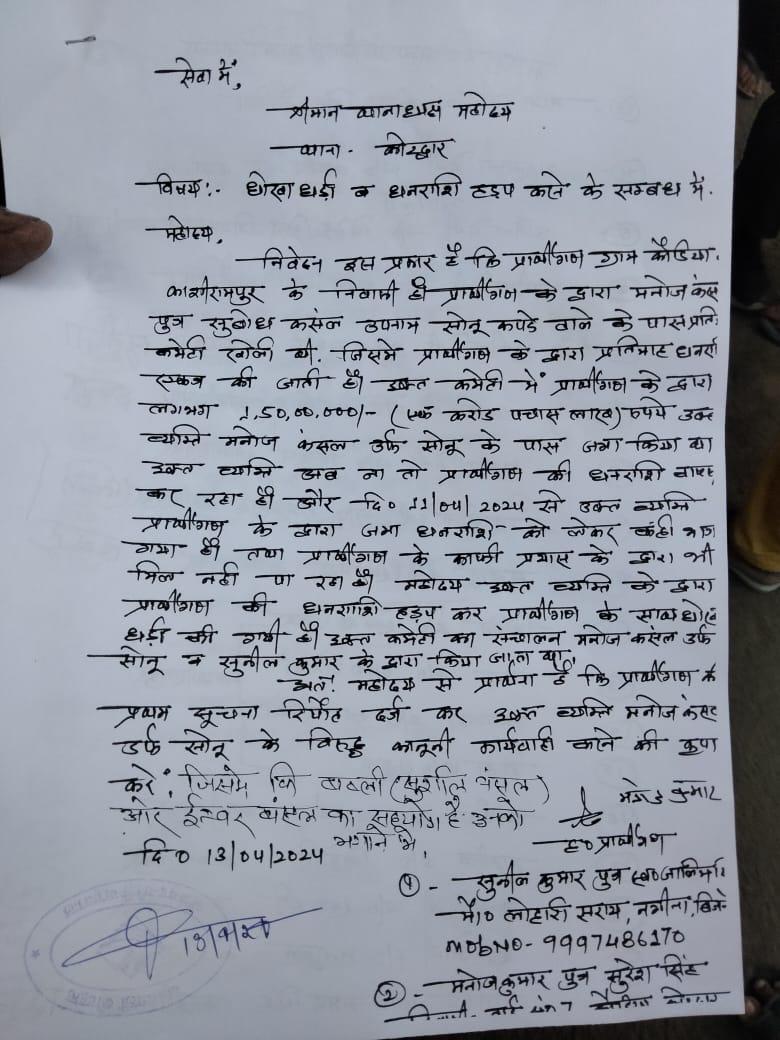 सेवा में,
श्रीमान थानाध्यक्ष महोदय
थाना - कोटद्वार
विषय:- धोखाधड़ी व धनराशि हड़प करने के सम्बन्ध में.
महोदय,
निवेदन इस प्रकार है कि प्रार्थीगण ग्राम कौडिया.
काशीरामपुर के निवासी है। प्रार्थीगण के द्वारा मनोज कंस
पुत्र सुबोध कंसल उपनाम सोनू कपडे वाले के पास प्रति
कमेटी खोली थी. जिसमे प्रार्थीगण के द्वारा प्रतिमाह धनरा
एकत्र की जाती है। उक्त कमेटी में प्रार्थीगण के द्वारा
लगभग 1,50,00,000/- (एक करोड पचास लाख) रुपये उक्त
व्यक्ति मनोज कंसल उर्फ सोनू के पास जमा किया था
उक्त व्यक्ति अब ना तो प्रार्थीगण की धनराशि वापस
कर रहा है। और दि० 11/04/2024 से उक्त व्यक्ति
प्रार्थीगण के द्वारा जमा धनराशि को लेकर कंही भाग
गया है। तथा प्रार्थीगण के काफी प्रयास के द्वारा भी
मिल नही पा रहा है। महोदय उक्त व्यक्ति के द्वारा
प्रार्थीगण की धनराशि हड़प कर प्रार्थीगण के साथ धोख
धड़ी की गयी है। उक्त कमेटी का संचालन मनोज कंसल उर्फ
सोनू व सुनील कुमार के द्वारा किया जाता था.
अतः महोदय से प्रार्थना है कि प्रार्थीगण के
प्रथम सूचना रिर्पोट दर्ज कर उक्त व्यक्ति मनोज कंसल
उर्फ सोनू के विरुद्ध कानूनी कार्यवाही करने की कृपा
करें. जिसमे कि (सुशील बंसल)
और ईश्वर बंसल का सहयोग है उनको
भगाने में.
दि० 13/04/2024
कुमार
ह० प्रार्थीगण
① - सुनील कुमार पुत्र स्व०
मौ० लोहारी सराय, नगीना, बिजनौ
Mob NO - 9997486170
② - मनोज कुमार पुत्र सुरेश सिंह
निवासी